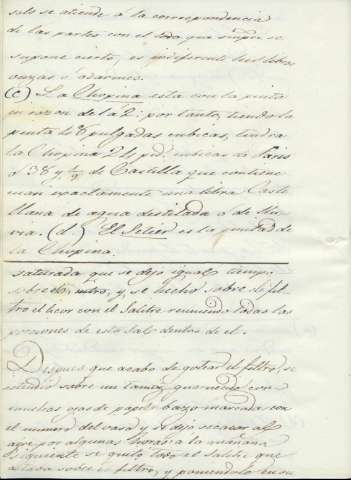 solo se atiende á la correspondencia
de las partes con el todo que siempre se
supone cierto, es indiferente leer libras
onzas o adarmes.
(c) La Chopina esta con la pinta
en razon del á 2: por tanto, tiendo la
pinta 48 pulgadas cubicas, tendra
la Chopina 24 pul.s cubicas de Paris
ó 38 y 1/2 de Castilla que contiene
cuan exactamente una libra Caste
llana de agua destilada ó de llu
via. (d) El Setier es la mitad de
la Chopina.
saturada que se dejó igual tiempo
sobre el filtro, y se hechó sobre el fil
tro el licor con el Salitre reuniendo todas las
porciones de esta Sal dentro de el.
Despues que acabo de gotear el filtro, se
estendió sobre un tamiz, guarnecido con
muchas ojas de papel bazo marcada con
el numero del vaso y se dejó secar al
ayre por algunas horas: a la mañana
siguiente se quitó todo el Salitre que
estaba sobre el filtro, y poniendolo en su